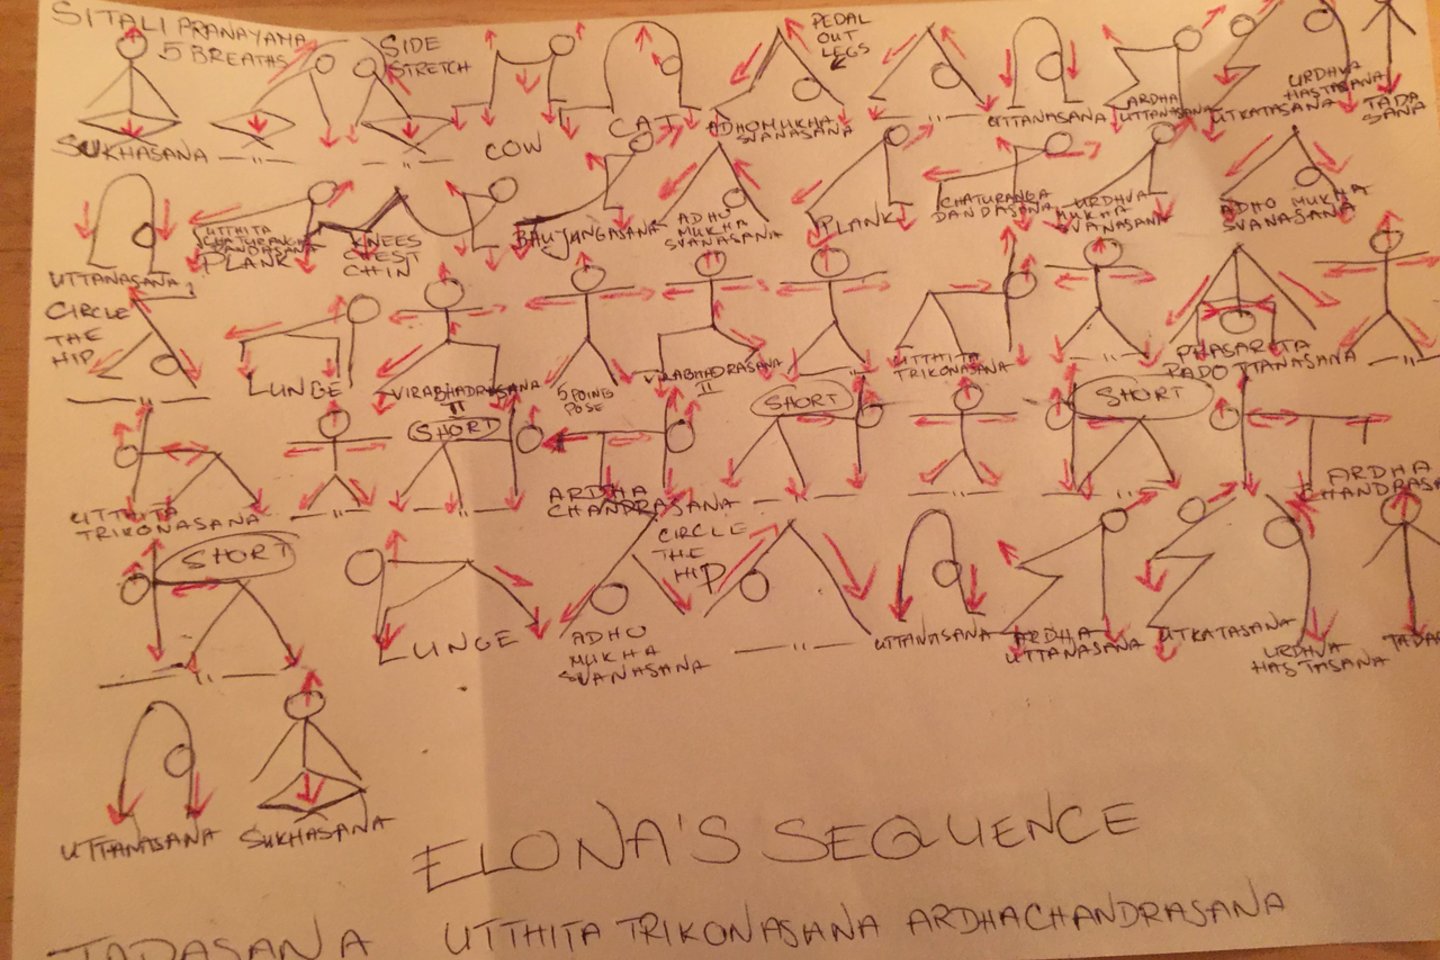 SITALI PRANAYAMA
5 BREATHS
SIDE
STRETCH
PEDAL
OUT
LEGS
SUKHASANA
COW
CAT
ADHOMUKHA
SVANASANA
UTTANASANA
ARDHA
UTTANASANA
UTKATASANA
URDHVA
HASTASANA
TADA
SANA
UTTANASANA
UTTHITA
CHATURANGA
DANDASANA
PLANK
KNEES
CHEST
CHIN
BAUJUNGASANA
ADHO
MUKHA
SVANASANA
PLANK
CHATURANGA
DANDASANA
URDHVA
MUKHA
SVANASANA
ADHO MUKHA
SVANASANA
CIRCLE
THE
HIP
LUNGE
VIRABHADRASANA
II
5 POINTS
POSE
VIRABHADRASANA
II
UTTHITA
TRIKONASANA
PHASARITA
PADOTTANASANA
UTTHITA
TRIKONASANA
SHORT
ARDHA
CHANDRASANA
SHORT
SHORT
ARDHA
CHANDRASA
SHORT
LUNGE
ADHO
MUKHA
SVANASANA
CIRCLE
THE
HIP
UTTANASANA
ARDHA
UTTANASANA
UTKATASANA
URDHVA
HASTASANA
TADA
UTTANASANA
SUKHASANA
ELONA'S SEQUENCE
TADASANA UTTHITA TRIKONASANA ARDHACHANDRASANA